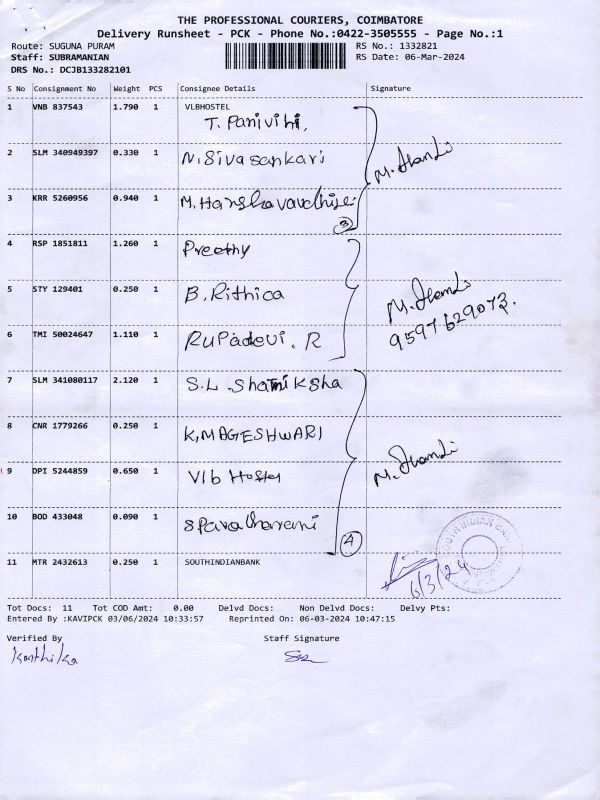 THE PROFESSIONAL COURIERS, COIMBATORE
Delivery Runsheet - PCK - Phone No.:0422-3505555 - Page No.:1
Route: SUGUNA PURAM RS No.: 1332821
Staff: SUBRAMANIAN RS Date: 06-Mar-2024
DRS No.: DCJB133282101
S No Consignment No Weight PCS Consignee Details Signature
1 VNB 837543 1.790 1 VLBHOSTEL
T. Panivihi,
2 SLM 340949397 0.330 1 N. Sivasankari
M.
3 KRR 5260956 0.940 1 M.
3
4 RSP 1851811 1.260 1 Preethy
5 STY 129401 0.250 1 B. Rithica
M.
9597629073.
6 TMI 50024647 1.110 1 RUPADEVI. R
7 SLM 341080117 2.120 1 S.L. Shamiksha
8 CNR 1779266 0.250 1 K,MAGESHWARI
M.
9 DPI 5244859 0.650 1 Vlb Hostel
10 BOD 433048 0.090 1
4
11 MTR 2432613 0.250 1 SOUTHINDIANBANK
SOUTH INDIAN
6/3/24
Tot Docs: 11 Tot COD Amt: 0.00 Delvd Docs: Non Delvd Docs: Delvy Pts:
Entered By :KAVIPCK 03/06/2024 10:33:57 Reprinted On: 06-03-2024 10:47:15
Verified By Staff Signature
Karthika